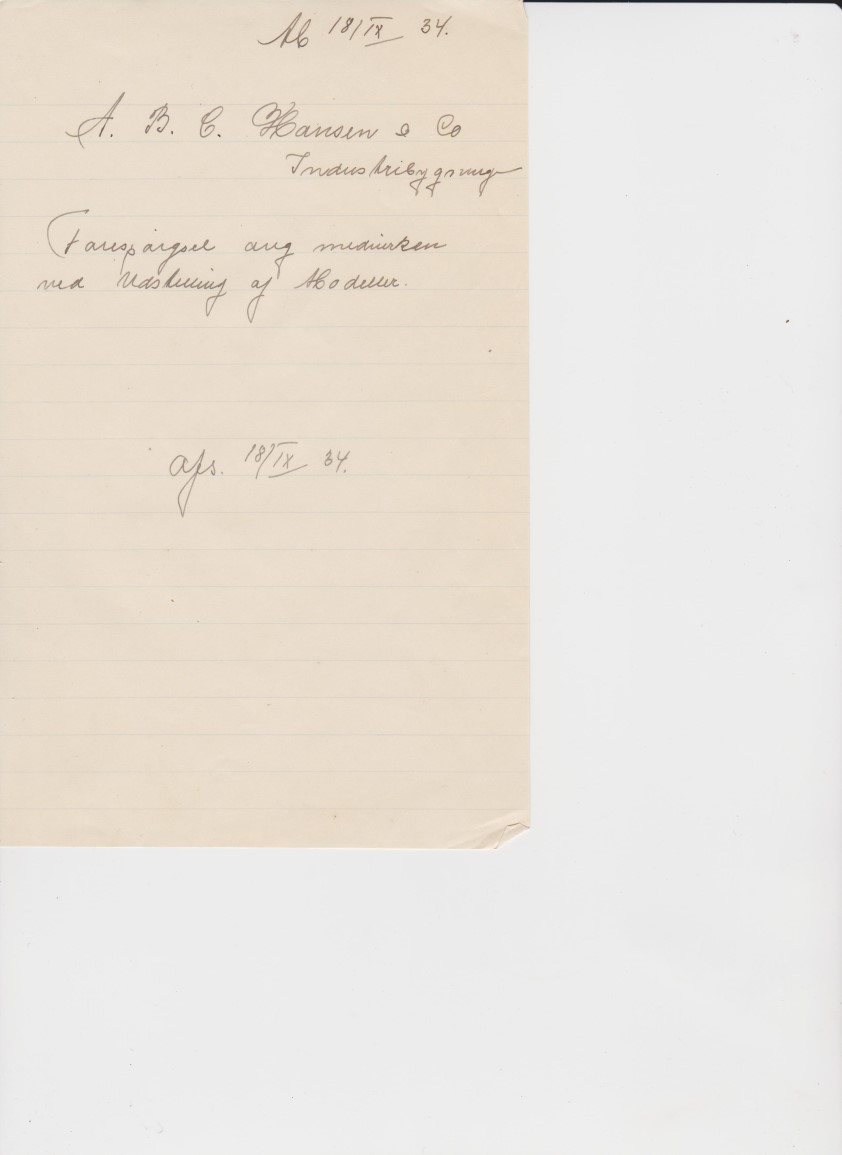 M 18/IX 34.
A. B. C. Hansen & Co
Industribygning
Forespørgsel ang medvirken
ved Udstilling af Modeller.
afs. 18/IX 34.